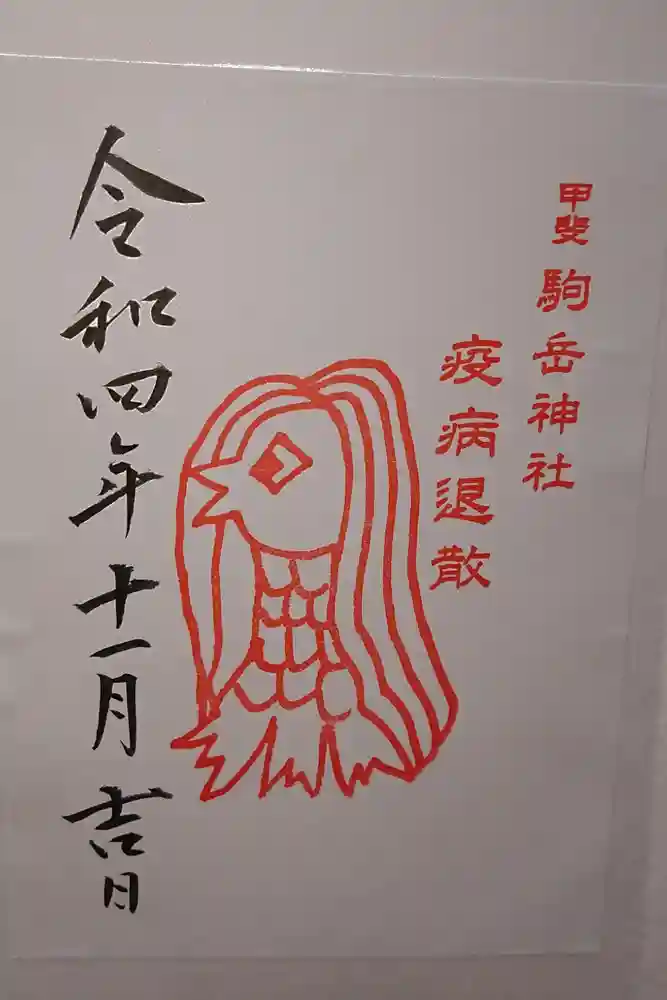 甲斐駒岳神社
疫病退散
令和四年十一月吉日